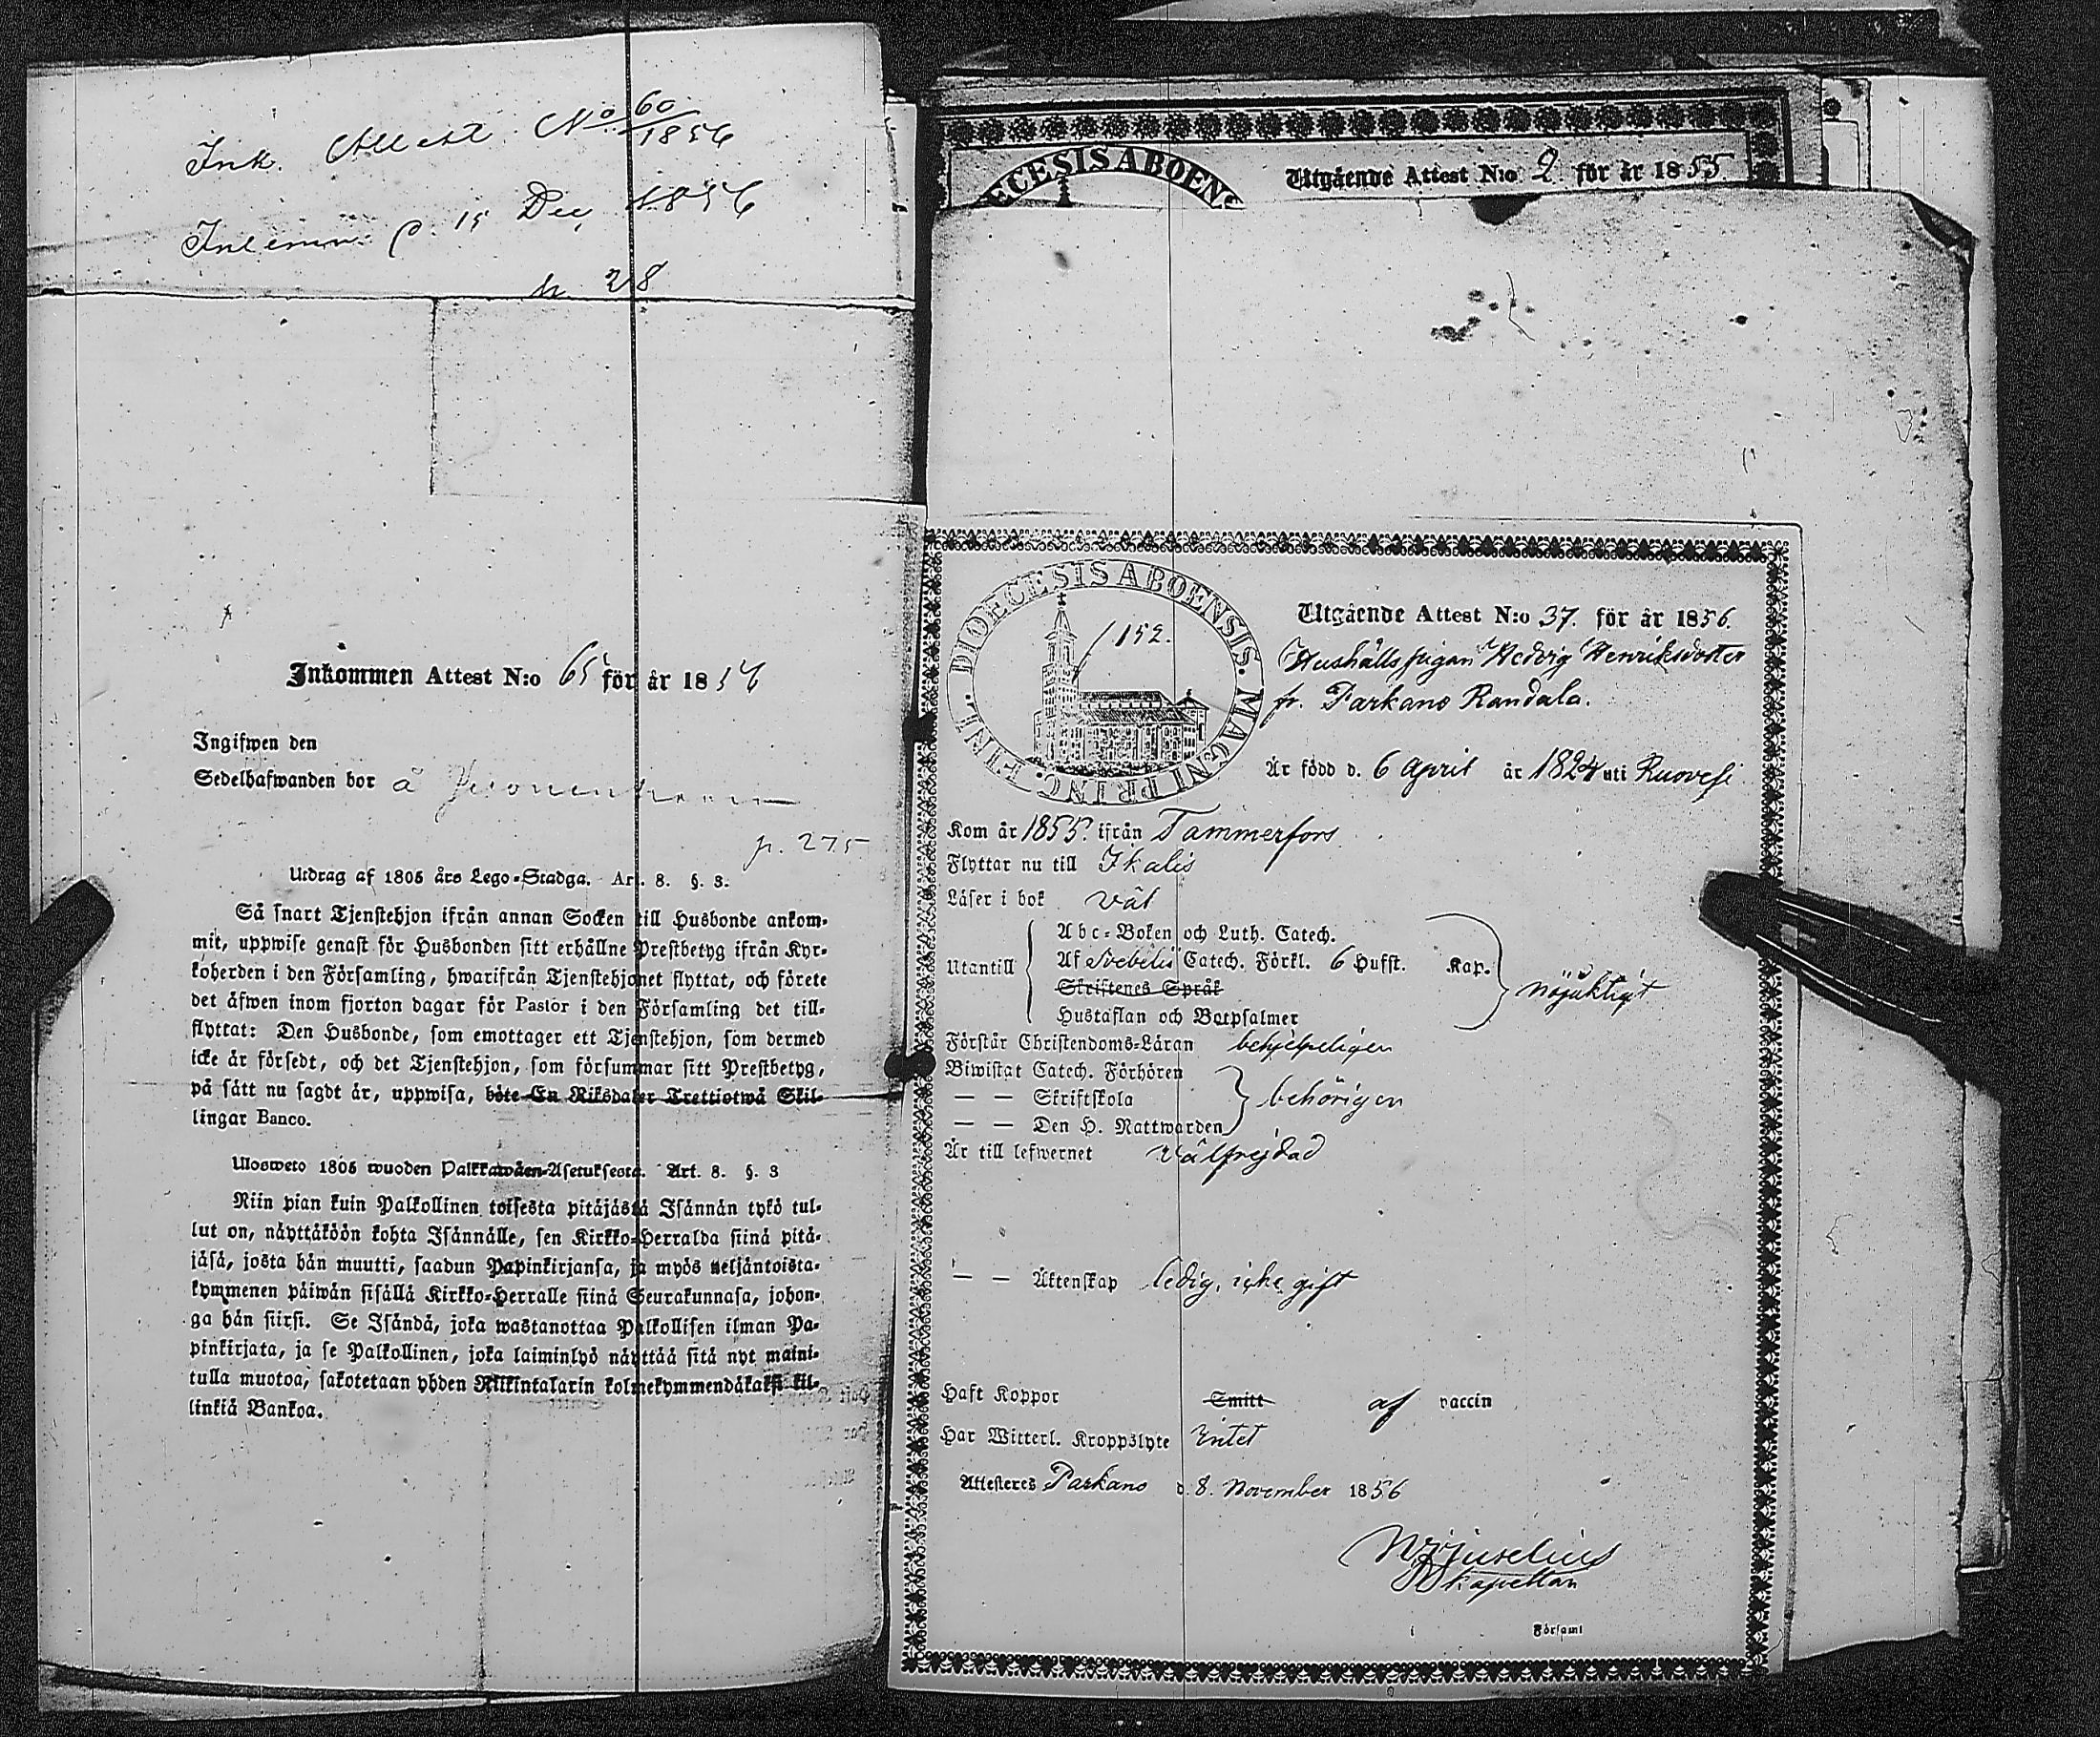 Ink. Attest No 60/1856
Inlemn. d. 15 Dec 1856
p. 28
Inkommen Attest N:o 65 för år 1856
Ingifwen den
Sedelhafwanden bor å
p. 275
Utdrag af 1805 års Lego-Stadga. Art. 8. §. 3.
Så snart Tjenstehjon ifrån annan Socken till Husbonde ankom-
mit, uppwise genast för Husbonden sitt erhållne Prestbetyg ifrån Kyr-
koherden i den Församling, hwarifrån Tjenstehjonet flyttat, och förete
det äfwen inom fjorton dagar för Pastor i den Församling det till-
flyttat: Den Husbonde, som emottager ett Tjenstehjon, som dermed
icke är försedt, och det Tjenstehjon, som försummar sitt Prestbetyg,
på sätt nu sagdt är, uppwisa, böte En Riksdaler Trettiotwå Skil-
lingar Banco.
Ulosweto 1805 wuoden Palkkawäen-Asetuksesta. Art. 8. §. 3
Niin pian kuin Palkollinen toisesta pitäjästä Isännän tykö tul-
lut on, näyttäköön kohta Isännälle, sen Kirkko-Herralda siinä pitä-
jäsä, josta hän muutti, saadun Papinkirjansa, ja myös neljäntoista-
kymmenen päiwän sisällä Kirkko-Herralle siinä Seurakunnasa, johon-
ga hän siirsi. Se Isändä, joka wastanottaa Palkollisen ilman Pa-
pinkirjata, ja se Palkollinen, joka laiminlyö näyttää sitä nyt maini-
tulla muotoa, sakotetaan yhden Riikintalarin kolmekymmendäkaksi kil-
linkiä Bankoa.
DIOECESIS ABOENS
Utgående Attest N:o 2 för år 1855
DIOECESIS ABOENSIS. MAGNI PRINC. FINL.
152.
Utgående Attest N:o 37. för år 1856.
Hushålls pigan Hedvig Henriksdotter
fr. Parkano Randala.
Är född d. 6 April år 1824 uti Ruovesi
Kom år 1855. ifrån Tammerfors.
Flyttar nu till Ikalis
Läser i bok väl
Utantill
Abc-Boken och Luth. Catech.
Af Svebelii Catech. Förkl. 6 Hufst. Kap.
Skriftenes Språk
Hustaflan och Botpsalmer
nöjaktigt
Förstår Christendoms-Läran behjelpeligen
Biwistat Catech. Förhören
— — Skriftskola
— — Den H. Nattwarden
behörigen
Är till lefwernet välfrejdad
— — Äktenskap ledig, icke gift
Haft Koppor Smitt af vaccin
Har Witterl. Kroppslyte Intet
Attesteres Parkano d. 8. November 1856
kapellan
i Församl